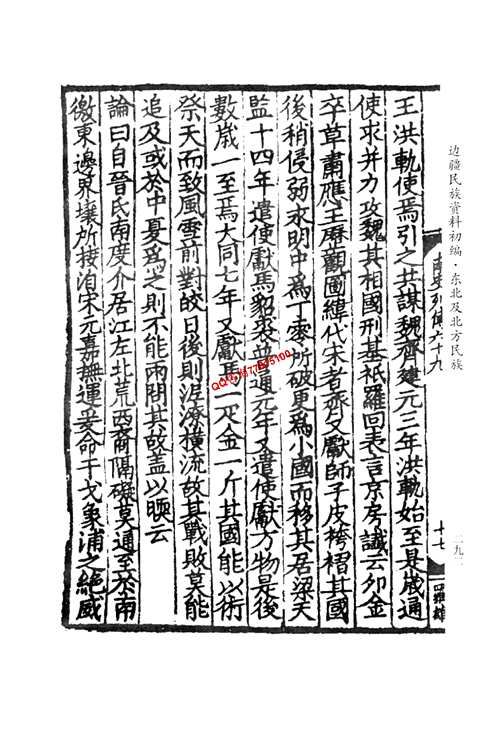 边疆民族资料初编·东北及北方民族
南史列傳六十九
十七
王洪軌使焉引之共謀魏齊建元三年洪軌始至是歲通
使求并力攻魏其相國刑基祇羅回表言京房讖云卯金
卒草肅應王厯觀圖緯代宋者齊又獻師子皮袴褶其國
後稍侵弱永明中爲丁零所破更爲小國而移其居梁天
監十四年遣使獻馬貂裘普通元年又遣使獻方物是後
數歲一至焉大同七年又獻馬一疋金一斤其國能以術
祭天而致風雪前對皎日後則泥潦橫流故其戰敗莫能
追及或於中夏爲之則不能雨問其故蓋以暖云
論曰自晉氏南度介居江左北荒西裔隔礙莫通至於南
徼東邊界壤所接洎宋元嘉撫運爰命干戈象浦之絕威